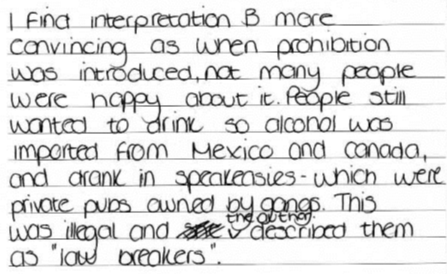 I find interpretation B more
convincing as when prohibition
was introduced, not many people
were happy about it. People still
wanted to drink so alcohol was
imported from Mexico and canada,
and drank in speakeasies - which were
private pubs owned by gangs. This
was illegal and the author described them
as "law breakers".